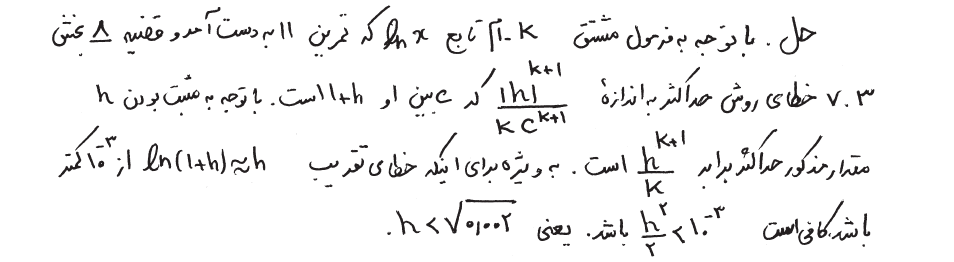 حل. با توجه به فرمول مشتق k-ام تابع ln x که تمرین ۱۱ به دست آمد و قضیه ۸ بخش
۷.۳ خطای روش حداکثر به اندازهٔ |h|^{k+1} / k c^{k+1} که c بین ۱ و ۱+h است. با توجه به مثبت بودن h
مقدار مذکور حداکثر برابر h^{k+1} / k است. به ویژه برای اینکه خطای تقریب ln(1+h) ≈ h از ۱۰^{-۳} کمتر
باشد، کافی است h^۲ / ۲ < ۱۰^{-۳} باشد. یعنی h < √۰٫۰۰۲.